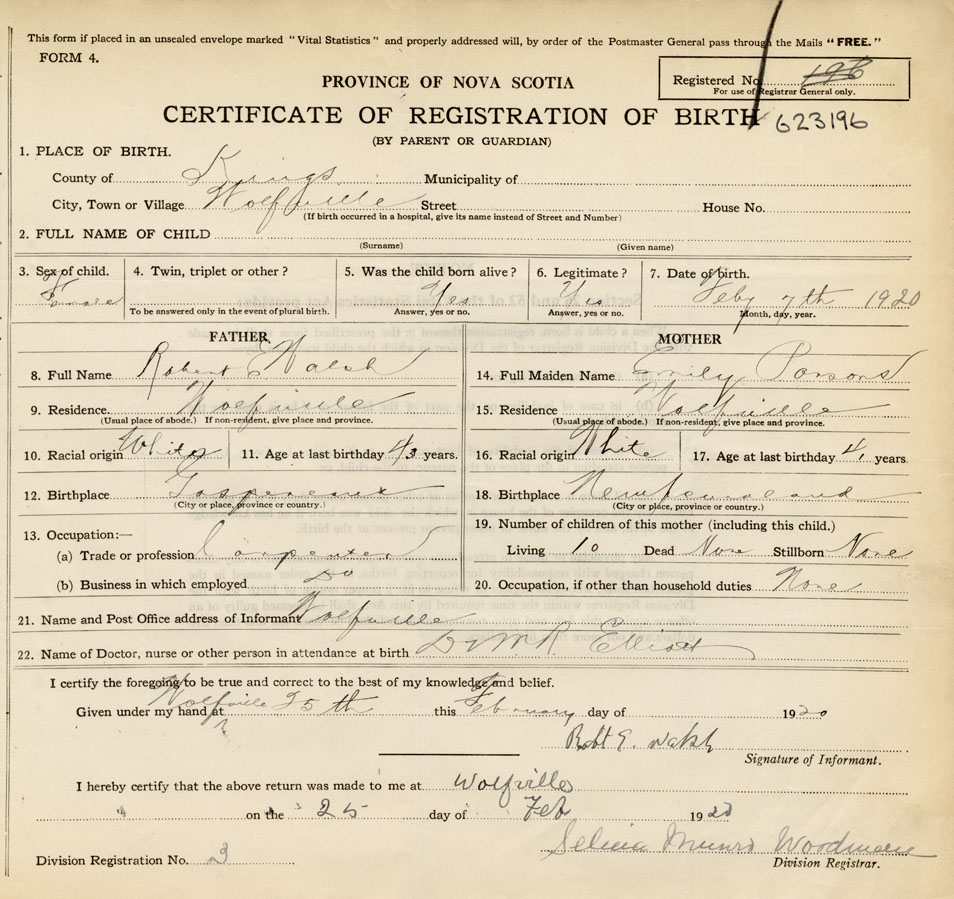 This form if placed in an unsealed envelope marked "Vital Statistics" and properly addressed will, by order of the Postmaster General pass through the Mails "FREE."
FORM 4.
PROVINCE OF NOVA SCOTIA
Registered No. 196
For use of Registrar General only.
CERTIFICATE OF REGISTRATION OF BIRTH 623196
(BY PARENT OR GUARDIAN)
1. PLACE OF BIRTH.
County of Kings Municipality of
City, Town or Village Wolfville Street House No.
(If birth occurred in a hospital, give its name instead of Street and Number)
2. FULL NAME OF CHILD
(Surname) (Given name)
3. Sex of child. 4. Twin, triplet or other? 5. Was the child born alive? 6. Legitimate? 7. Date of birth.
Female Yes Yes Feby 7th 1920
To be answered only in the event of plural birth. Answer, yes or no. Answer, yes or no. Month, day, year.
FATHER MOTHER
8. Full Name Robert E Walsh 14. Full Maiden Name Emily Parsons
9. Residence. Wolfville 15. Residence Wolfville
(Usual place of abode.) If non-resident, give place and province. (Usual place of abode.) If non-resident, give place and province.
10. Racial origin White 11. Age at last birthday 43 years. 16. Racial origin White 17. Age at last birthday years.
12. Birthplace Gaspereaux 18. Birthplace Newfoundland
(City or place, province or country.) (City or place, province or country.)
13. Occupation:— 19. Number of children of this mother (including this child.)
(a) Trade or profession Carpenter Living 10 Dead None Stillborn None
(b) Business in which employed Do 20. Occupation, if other than household duties None
21. Name and Post Office address of Informant Wolfville
22. Name of Doctor, nurse or other person in attendance at birth Dr M R Elliott
I certify the foregoing to be true and correct to the best of my knowledge and belief.
Given under my hand at Wolfville 25th this February day of 1920
Robt E. Walsh
Signature of Informant.
I hereby certify that the above return was made to me at Wolfville
on the 25 day of Feb 1920
Selina Munro Woodman
Division Registration No. 3 Division Registrar.